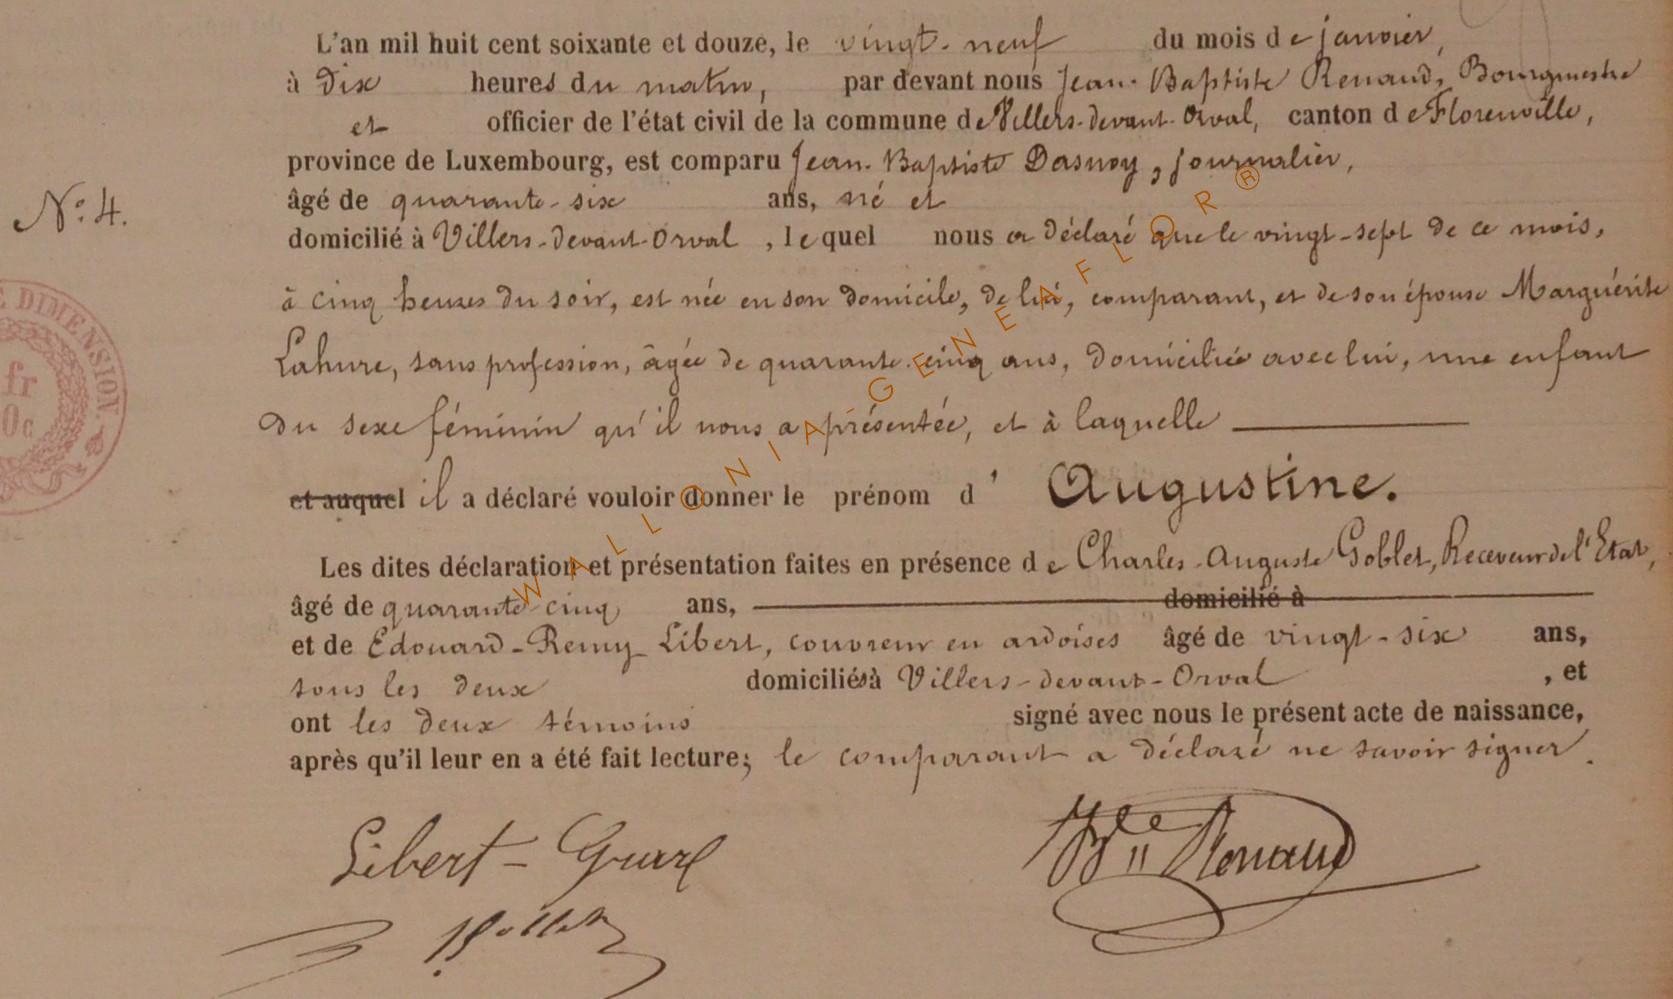 L'an mil huit cent soixante et douze, le vingt-neuf du mois de janvier,
à Dix heures du matin, par devant nous Jean-Baptiste Renaud, Bourgmestre
et officier de l'état civil de la commune de Villers-devant-Orval, canton de Florenville,
province de Luxembourg, est comparu Jean-Baptiste Dasnoy, journalier,
N° 4.
âgé de quarante-six ans, né et
domicilié à Villers-devant-Orval, lequel nous a déclaré que le vingt-sept de ce mois,
à cinq heures du soir, est née en son domicile, de lui, comparant, et de son épouse Marguérite
Lahure, sans profession, âgée de quarante-cinq ans, domiciliée avec lui, une enfant
du sexe féminin qu'il nous a présentée, et à laquelle
et auquel il a déclaré vouloir donner le prénom d'Augustine.
Les dites déclaration et présentation faites en présence de Charles-Auguste Goblet, Receveur de l'Etat,
âgé de quarante-cinq ans, domicilié à
et de Edouard-Remy Libert, couvreur en ardoises âgé de vingt-six ans,
tous les deux domiciliés à Villers-devant-Orval, et
ont les deux témoins signé avec nous le présent acte de naissance,
après qu'il leur en a été fait lecture; le comparant a déclaré ne savoir signer.
Libert-
Renaud
DIMENSION.
fr
0c
WALLONIA-GENEAFLOR®